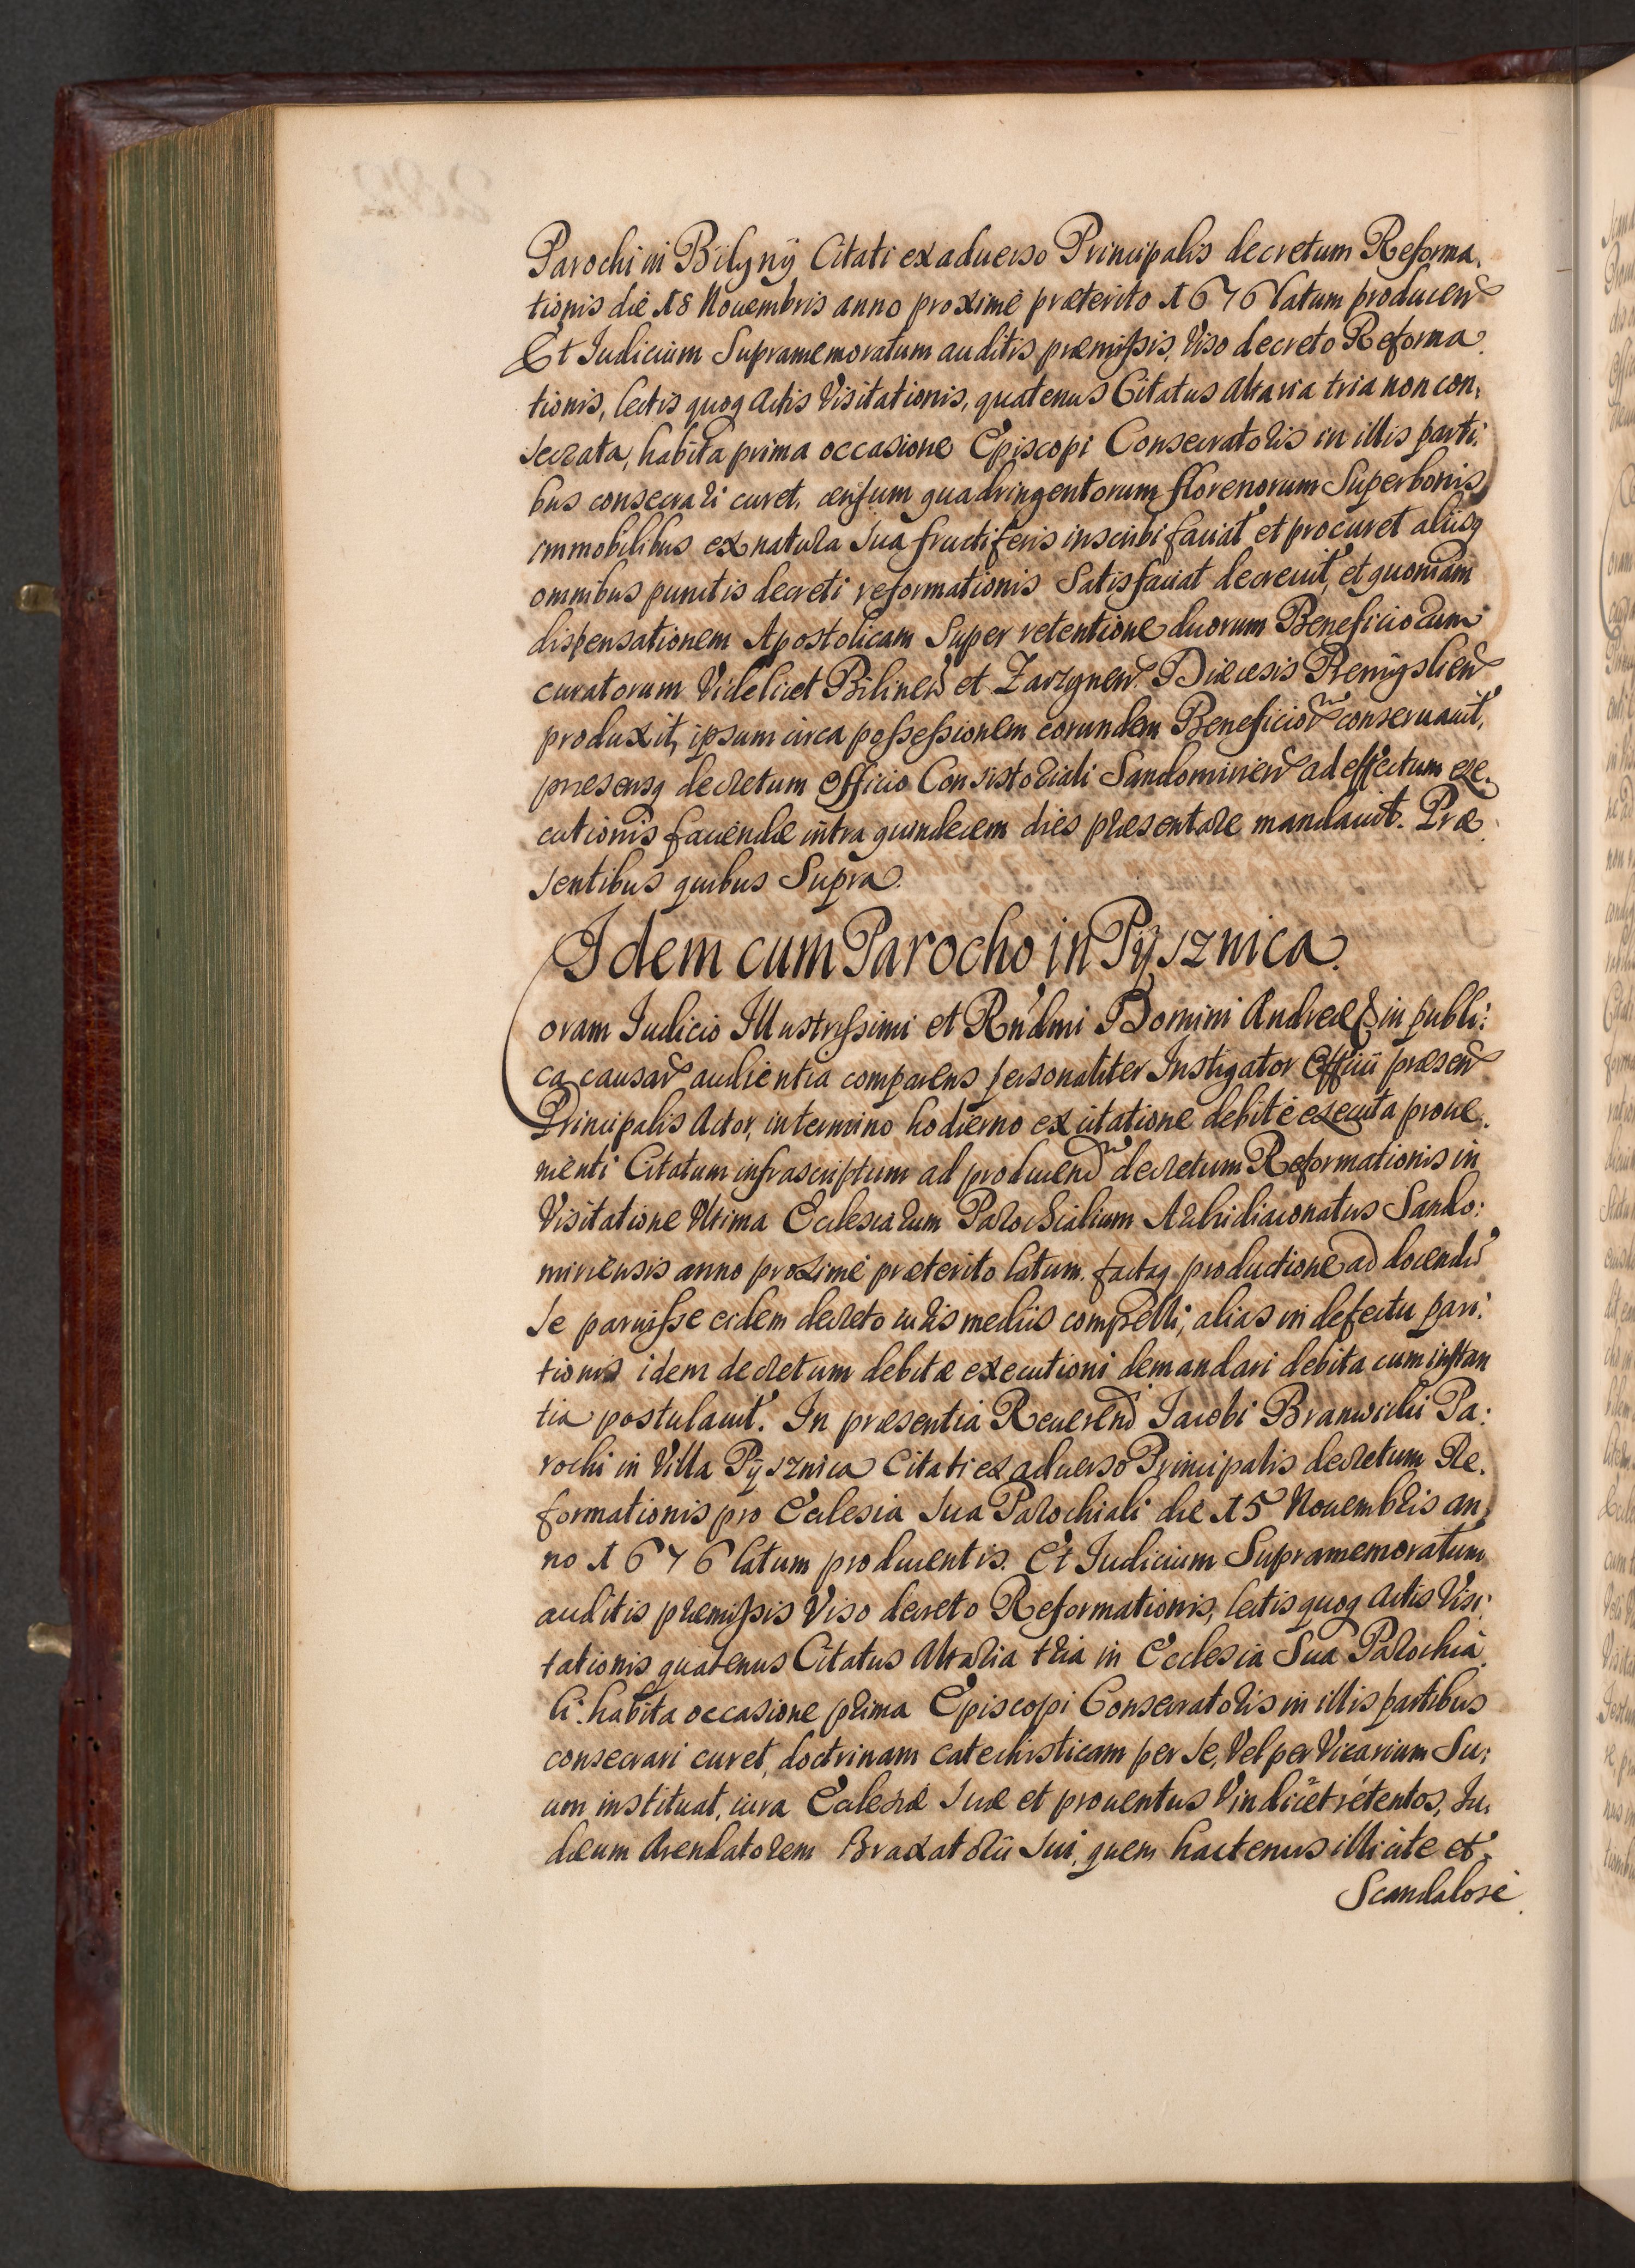 Parochi in Bilyny Citati ex aduerso Principalis decretum Reforma,
tionis die 18 Nouembris anno proximè præterito 1676 latum producen
Et Iudicium Supramemoratum auditis præmissis, Viso decreto Reforma
tionis, lectis quoq Actis Visitationis, quatenus Citatus Altaria tria non con,
secrata, habita prima occasione Episcopi Consecratoris in illis parti:
bus consecrari curet, censum quadringentorum florenorum Super bonis
immobilibus ex natura sua fructiferis inscribi faciat et procuret aliisq
omnibus punctis decreti reformationis Satisfaciat decreuit, et quoniam
dispensationem Apostolicam Super retentione duorum Beneficiorum
curatorum Videlicet Bilinen et Zarzynen Diæcesis Premysliens
produxit, ipsum circa possessionem eorundem Beneficior conseruauit,
præsensq decretum Officio Consistoriali Sandomirien ad effectum exe,
cutionis faciendæ intra quindecem dies præsentare mandauit. Præ
sentibus quibus Supra.
Idem cum Parocho in Pysznica.
Coram Iudicio Illustrissimi et Rndmi Domini Andreæ & in publi:
ca causar audientia comparens personaliter Instigator Officii præsen
Principalis Actor, in termino hodierno ex citatione debitè executa proue,
nienti Citatum infrascriptum ad producend decretum Reformationis in
Visitatione Vltima Ecclesiarum Parochialium Archidiaconatus Sando:
miriensis anno proximè præterito latum. factaq productione ad docendu
se paruisse eidem decreto iuris mediis compelli, alias in defectu pari:
tionis idem decretum debitæ executioni demandari debita cum instan
tia postulauit. In præsentia Reuerend Iacobi Branwicki Pa:
rochi in Villa Pysznica Citati ex aduerso Principalis decretum Re,
formationis pro Ecclesia sua Parochiali die 15 Nouembris an,
no 1676 latum producentis. Et Iudicium Supramemoratum
auditis præmissis Viso decreto Reformationis, lectis quoq Actis Visi:
tationis quatenus Citatus Altaria tria in Ecclesia Sua Parochia
li habita occasione prima Episcopi Consecratoris in illis partibus
consecrari curet, doctrinam catechisticam per se, Vel per Vicarium Su:
um instituat, iura Ecclesiæ suæ et prouentus Vindicet retentos, Iu,
dæum Arendatorem Braxatorii sui, quem hactenus illicite et
Scandalosè